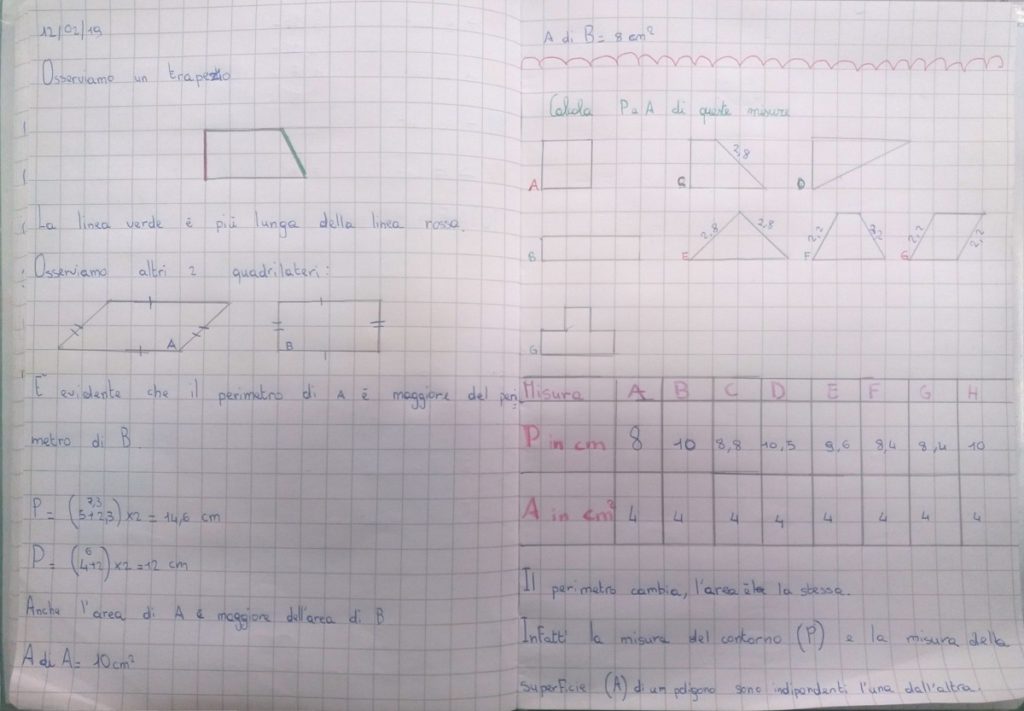 12/02/19
Osserviamo un trapezio
La linea verde è più lunga della linea rossa.
Osserviamo altri 2 quadrilateri:
A
B
È evidente che il perimetro di A è maggiore del peri
metro di B.
7,3
P= (5+2,3)x2= 14,6 cm
6
P= (4+2)x2=12 cm
Anche l'area di A è maggiore dell'area di B
A di A= 10cm²
A di B= 8cm²
Calcola P e A di queste misure
A
C 2,8
D
B
E 2,8 2,8
F 2,2 2,2
G 2,2 2,2
G
Misura A B C D E F G H
P in cm 8 10 8,8 10,5 9,6 8,4 8,4 10
A in cm² 4 4 4 4 4 4 4 4
Il perimetro cambia, l'area è la stessa.
Infatti la misura del contorno (P) e la misura della
superficie (A) di un poligono sono indipendenti l'una dall'altra.